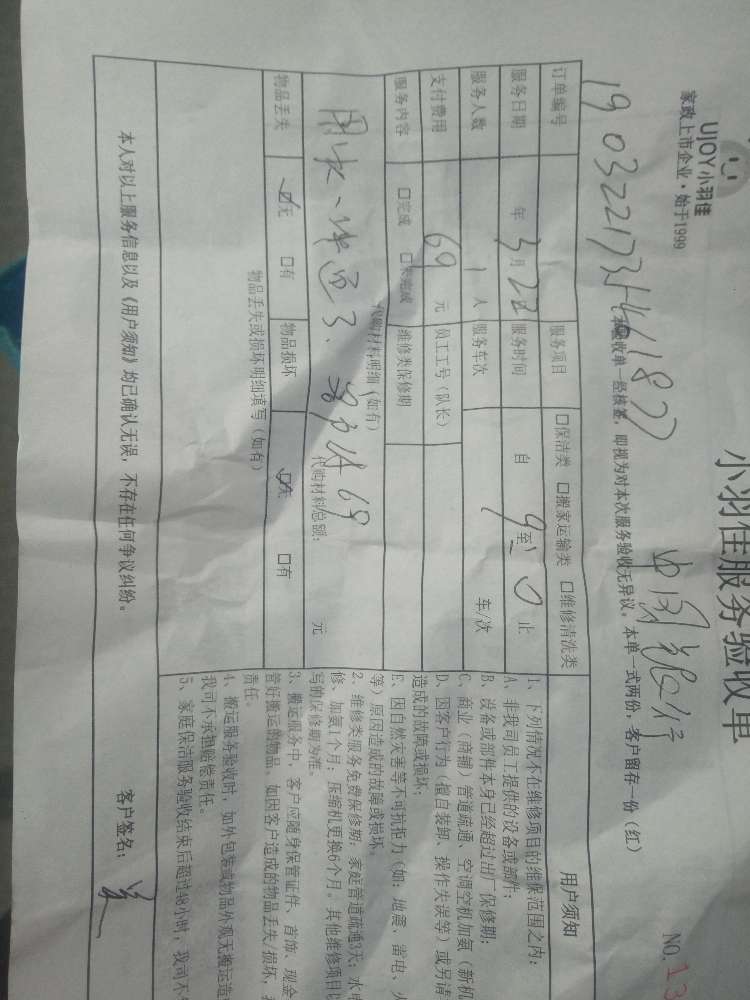 UJOY小羽佳
家政上市企业·始于1999
小羽佳服务验收单
NO. 13
中国银行
本验收单一经核签，即视为对本次服务验收无异议，本单一式两份，客户留存一份（红）
订单编号
服务项目 口保洁类 口搬家运输类 口维修清洗类
服务日期 年 3月22日 服务时间 自 9至 10 止
服务人数 1人 服务车次 车/次
支付费用 69 元 员工工号（队长）
服务内容 口完成 口未完成 维修类保修期
代购材料明细（如有）
代购材料总额： 元
物品丢失 ☑无 口有 物品损坏 ☑无 口有
物品丢失或损坏明细填写（如有）
本人对以上服务信息以及《用户须知》均已确认无误，不存在任何争议纠纷。
客户签名：
用户须知
1、下列情况不在维修项目的维保范围之内：
A、非我司员工提供的设备或部件；
B、设备或部件本身已经超过出厂保修期；
C、商业（商铺）管道疏通、空调空机加氨（新机
D、因客户行为（擅自装卸、操作失误等）或另请
造成的故障或损坏；
E、因自然灾害等不可抗拒力（如：地震、雷电、火
等）原因造成的故障或损坏。
2、维修类服务免费保修期：家庭管道疏通3天；水电
修、加氨1个月；压缩机更换6个月。其他维修项目以
写的保修期为准。
3、搬运服务中，客户应随身保管证件、首饰、现金
管好搬运的物品。如因客户造成的物品丢失/损坏，我
责任。
4、搬运服务验收时，如外包装或物品外观无搬运造
我司不承担赔偿责任。
5、家庭保洁服务验收结束后超过48小时，我司不